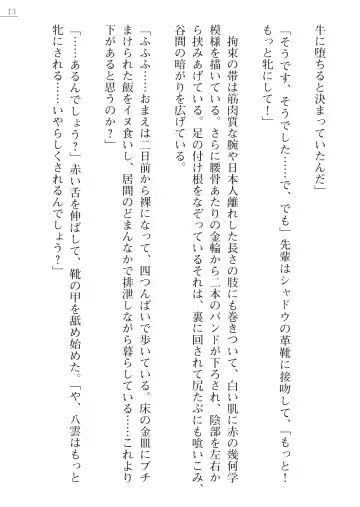 13
牛に堕ちると決まっていたんだ」
「そうです、そうでした……で、でも」先輩はシャドウの革靴に接吻して、「もっと！
もっと牝にして！」
拘束の帯は筋肉質な腕や日本人離れした長さの肢にも巻きついて、白い肌に赤の幾何学
模様を描いている。さらに腰骨あたりの金輪から二本のバンドが下ろされ、陰部を左右か
ら挟みあげている。足の付け根をなぞっているそれは、裏に回されて尻たぶにも喰いこみ、
谷間の暗がりを広げている。
「ふふふ……おまえは二日前から裸になって、四つんばいで歩いている。床の金皿にブチ
まけられた飯をイヌ食いし、居間のどまんなかで排泄しながら暮らしている……これより
下があると思うのか？」
「……あるんでしょう？」赤い舌を伸ばして、靴の甲を舐め始めた。「や、八雲はもっと
牝にされる……いやらしくされるんでしょう？」